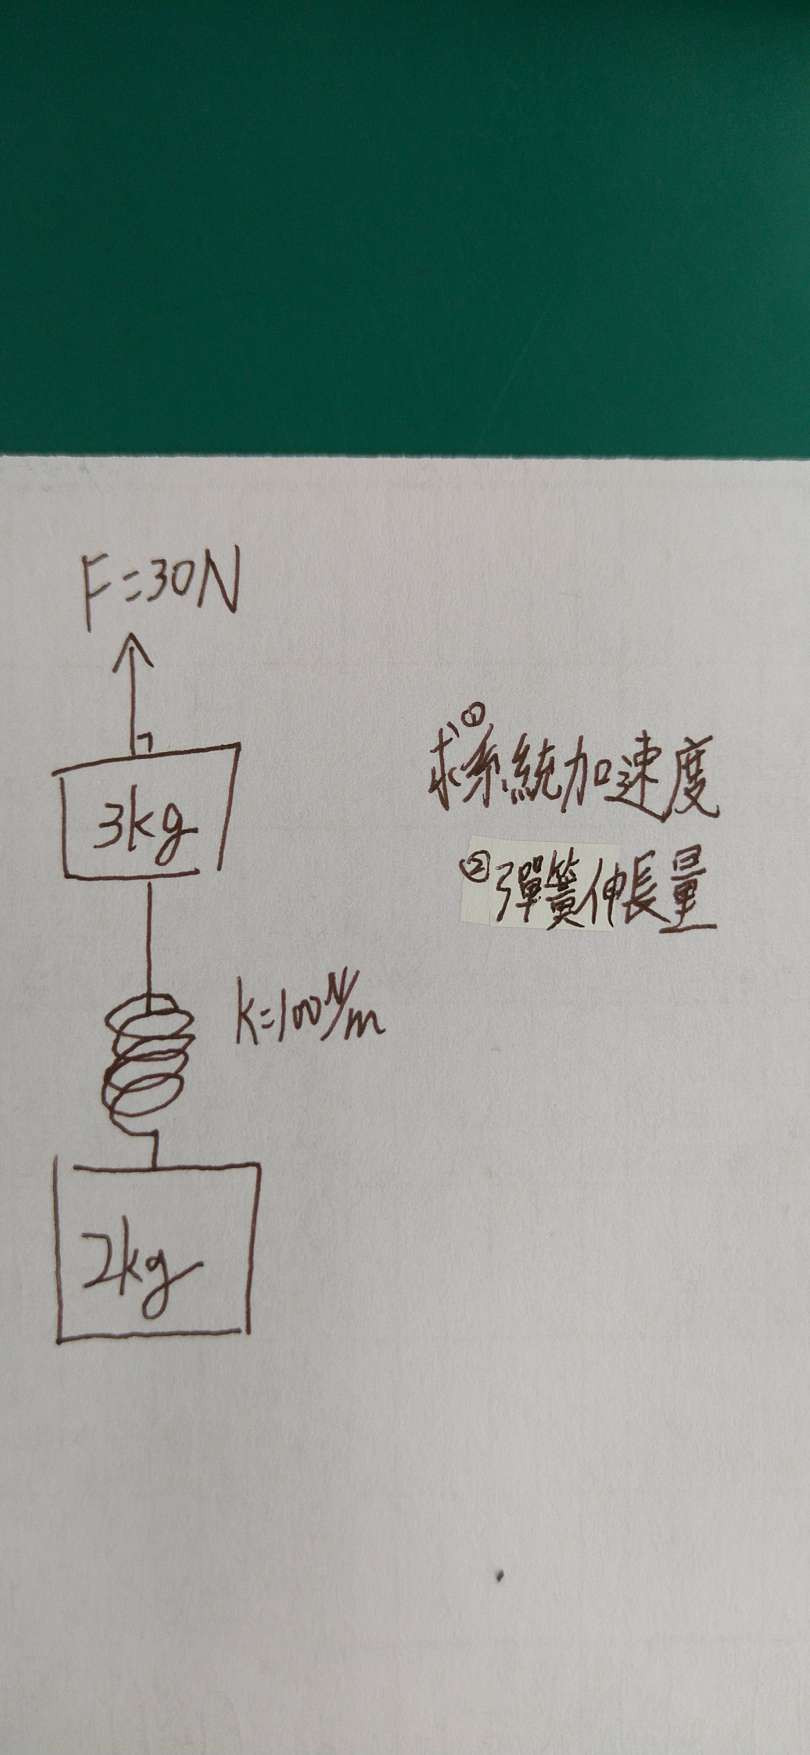 F=30N
3kg
k=100N/m
2kg
求①系統加速度
②彈簧伸長量